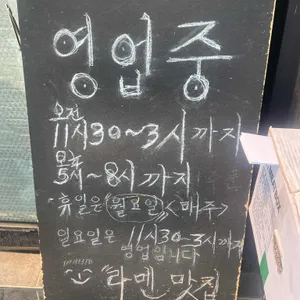 영업중
오전
11시30~3시까지
5시~8시까지
휴일은 월요일 <매주>
일요일은 11시30~3시까지
영업입니다
"라멘 맛집